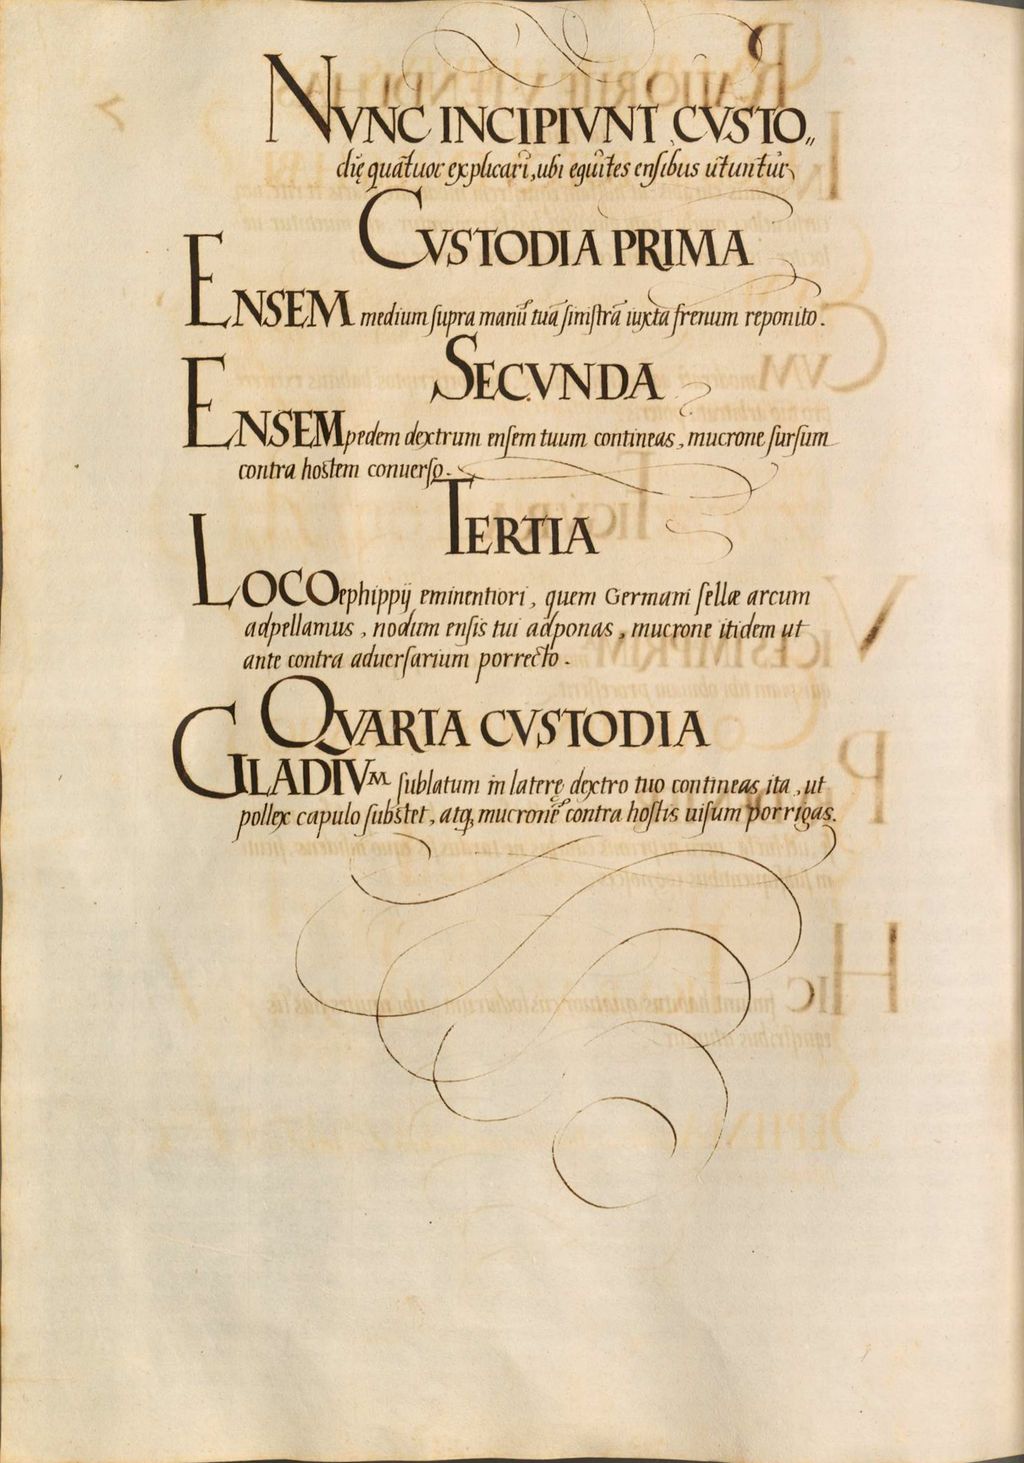 NVNC INCIPIVNT CVSTO„
dię quatuor explicari, ubi equites ensibus utuntur
CVSTODIA PRIMA
ENSEM medium supra manũ tuã sinistrã iuxta frenum reponito.
SECVNDA
ENSEM pedem dextrum ensem tuum contineas, mucrone sursum
contra hostem conuerso.
TERTIA
LOCO ephippij eminentiori, quem Germani sellæ arcum
adpellamus, nodum ensis tui adponas, mucrone itidem ut
ante contra aduersarium porrecto.
QVARTA CVSTODIA
GLADIVM sublatum in laterę dextro tuo contineas ita, ut
pollex capulo substet, atq, mucronẽ contra hostis uisum porrigas.